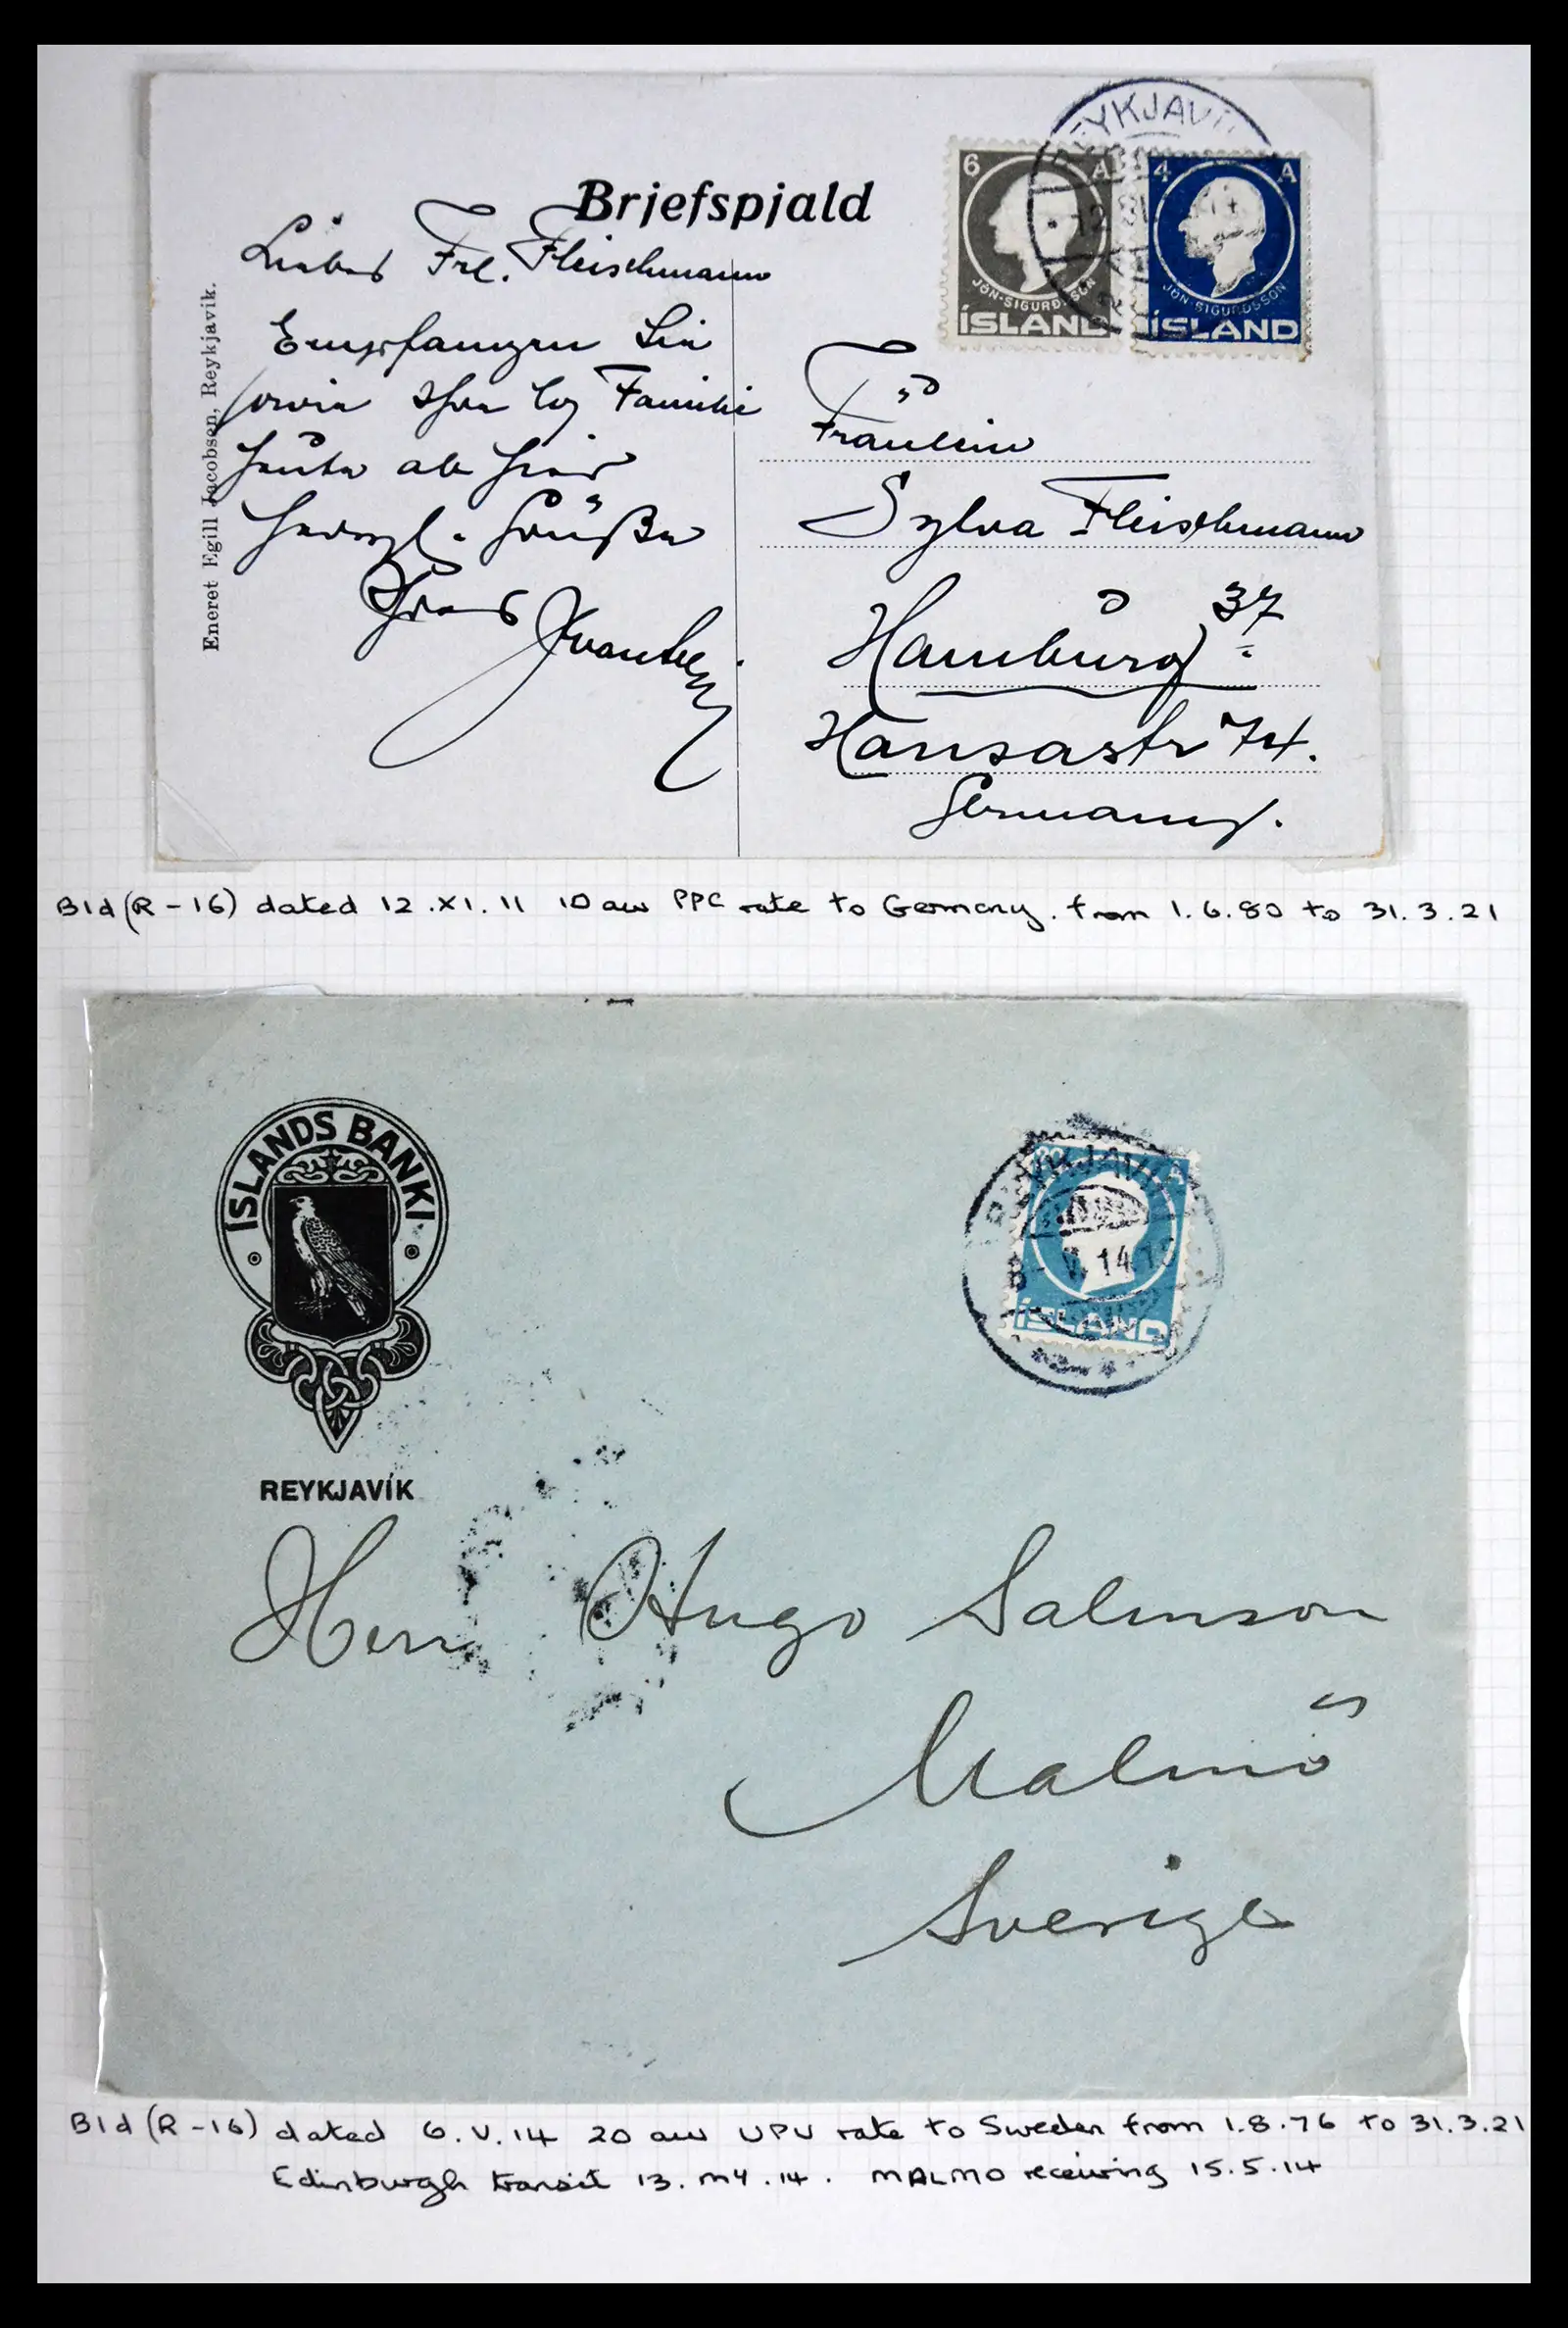 Briefspjald
REYKJAVÍK
12
6 A
JÓN·SIGURÐSSON
ÍSLAND
4 A
JÓN·SIGURÐSSON
ÍSLAND
Eneret Egill Jacobsen, Reykjavik.
Liebes Frl. Fleischmann
Empfangen Sie
sowie Ihre Familie
heute als hier
herzl. Grüße
Ihres
Fräulein
Sylva Fleischmann
Hamburg 37
Hansastr 74.
Germany.
B1d (R-16) dated 12.XI.11 10 aur PPC rate to Germany. from 1.6.80 to 31.3.21
ÍSLANDS BANKI
REYKJAVÍK
REYKJAVÍK
20 A
8 - V. 14
ÍSLAND
Herr Hugo Salmson
Malmö
Sverige
B1d (R-16) dated 6.V.14 20 aur UPU rate to Sweden from 1.8.76 to 31.3.21
Edinburgh transit 13.MY.14. MALMO receiving 15.5.14